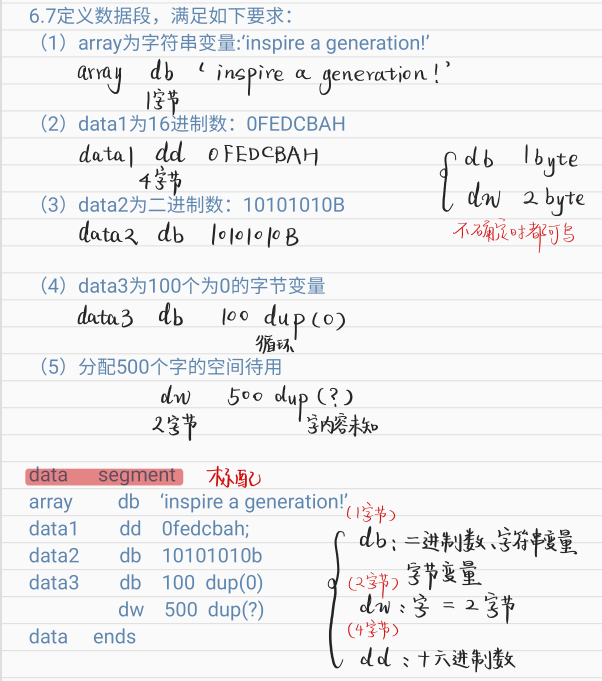 6.7定义数据段，满足如下要求：
（1）array为字符串变量:‘inspire a generation!’
array db ‘inspire a generation!’
1字节
（2）data1为16进制数：0FEDCBAH
data1 dd 0FEDCBAH
4字节
db 1byte
dw 2byte
不确定时都可写
（3）data2为二进制数：10101010B
data2 db 10101010B
（4）data3为100个为0的字节变量
data3 db 100 dup(0)
循环
（5）分配500个字的空间待用
dw 500 dup(?)
2字节 字内容未知
data segment 标配
array db ‘inspire a generation!’
data1 dd 0fedcbah;
data2 db 10101010b
data3 db 100 dup(0)
dw 500 dup(?)
data ends
(1字节)
db：二进制数、字符串变量
字节变量
(2字节)
dw：字 = 2字节
(4字节)
dd：十六进制数